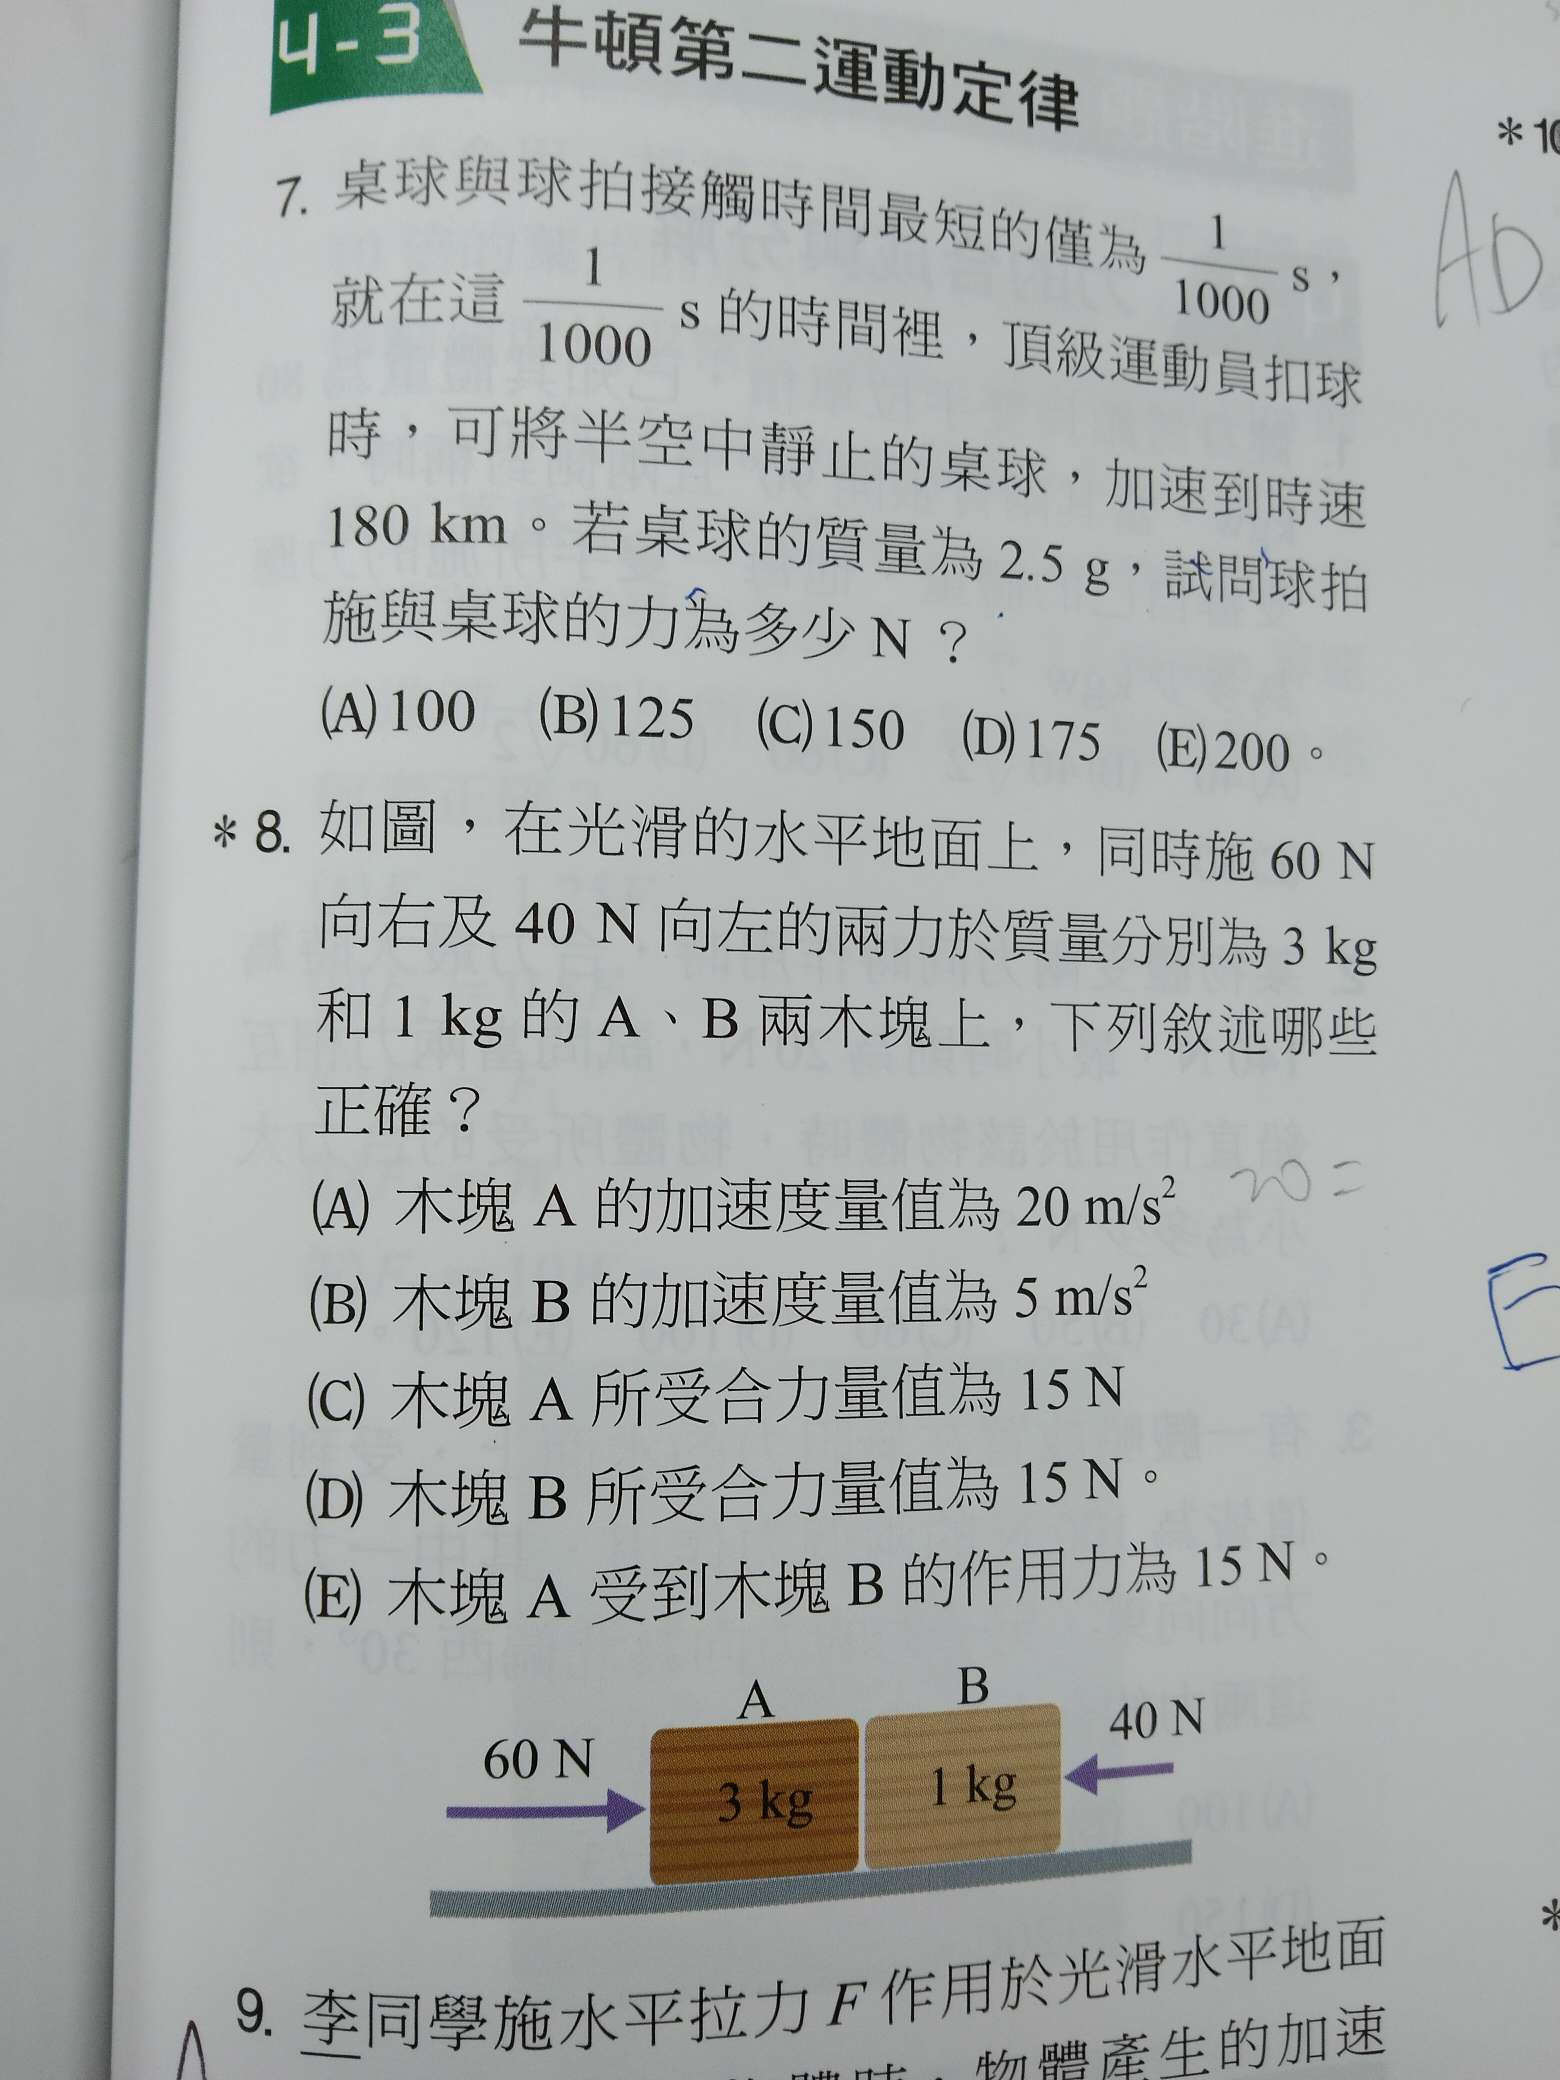 4-3 牛頓第二運動定律
*10
AD
7. 桌球與球拍接觸時間最短的僅為 1/1000 s，
就在這 1/1000 s 的時間裡，頂級運動員扣球
時，可將半空中靜止的桌球，加速到時速
180 km。若桌球的質量為 2.5 g，試問球拍
施與桌球的力為多少 N？
(A)100 (B)125 (C)150 (D)175 (E)200。
*8. 如圖，在光滑的水平地面上，同時施 60 N
向右及 40 N 向左的兩力於質量分別為 3 kg
和 1 kg 的 A、B 兩木塊上，下列敘述哪些
正確？
(A) 木塊 A 的加速度量值為 20 m/s² 20=
(B) 木塊 B 的加速度量值為 5 m/s²
(C) 木塊 A 所受合力量值為 15 N
(D) 木塊 B 所受合力量值為 15 N。
(E) 木塊 A 受到木塊 B 的作用力為 15 N。
A B
60 N 3 kg 1 kg 40 N
9. 李同學施水平拉力 F 作用於光滑水平地面
體時，物體產生的加速